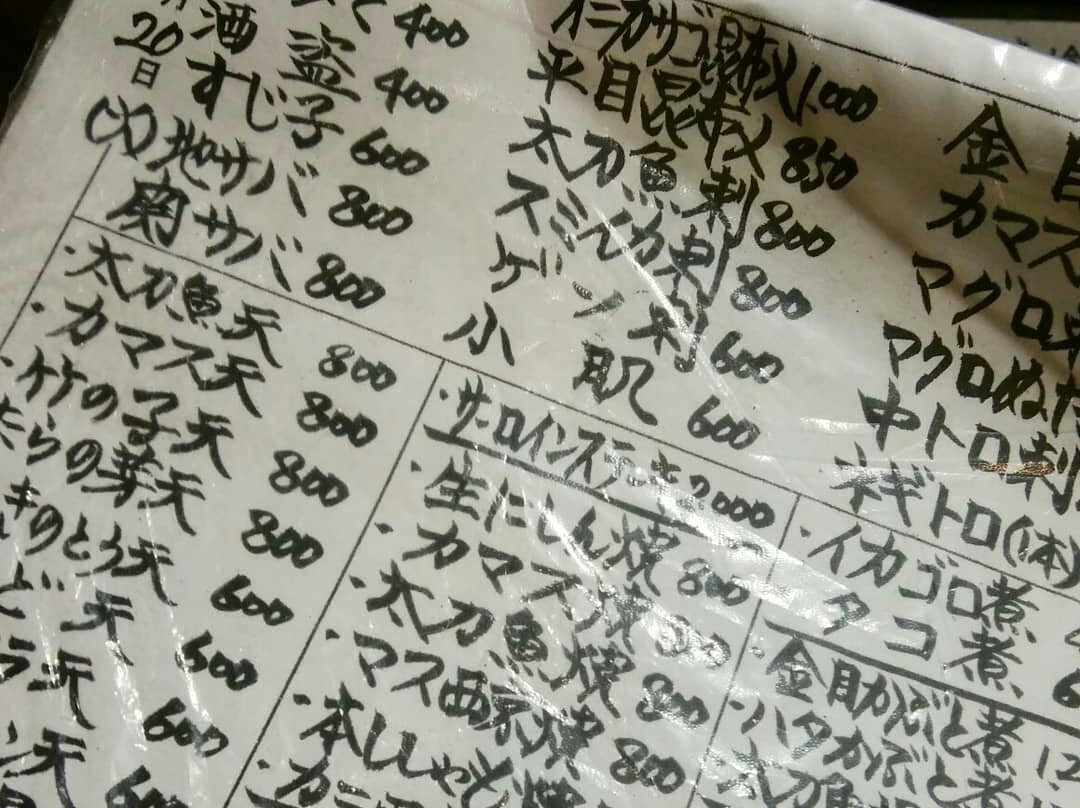 400
酒盗 400
20日
すじ子 600
(火)
地サバ 800
関サバ 800
イシカサゴ昆布〆 1,000
平目昆布〆 850
太刀魚刺 800
スミイカ刺 800
ゲソ刺 600
小肌 600
金目
カマス
マグロ
マグロぬた
中トロ刺
ネギトロ(1本)
・太刀魚天 800
・カマス天 800
・竹の子天 800
たらの芽天 800
ふきのとう天 600
天 600
天 600
天 600
・サーロインステーキ 2000
・生にしん焼 800
・カマス焼
・太刀魚焼 800
・マス西京焼 800
・本ししゃも
・イカゴロ煮
タコ煮
・金目かぶと煮
・ハタかぶと